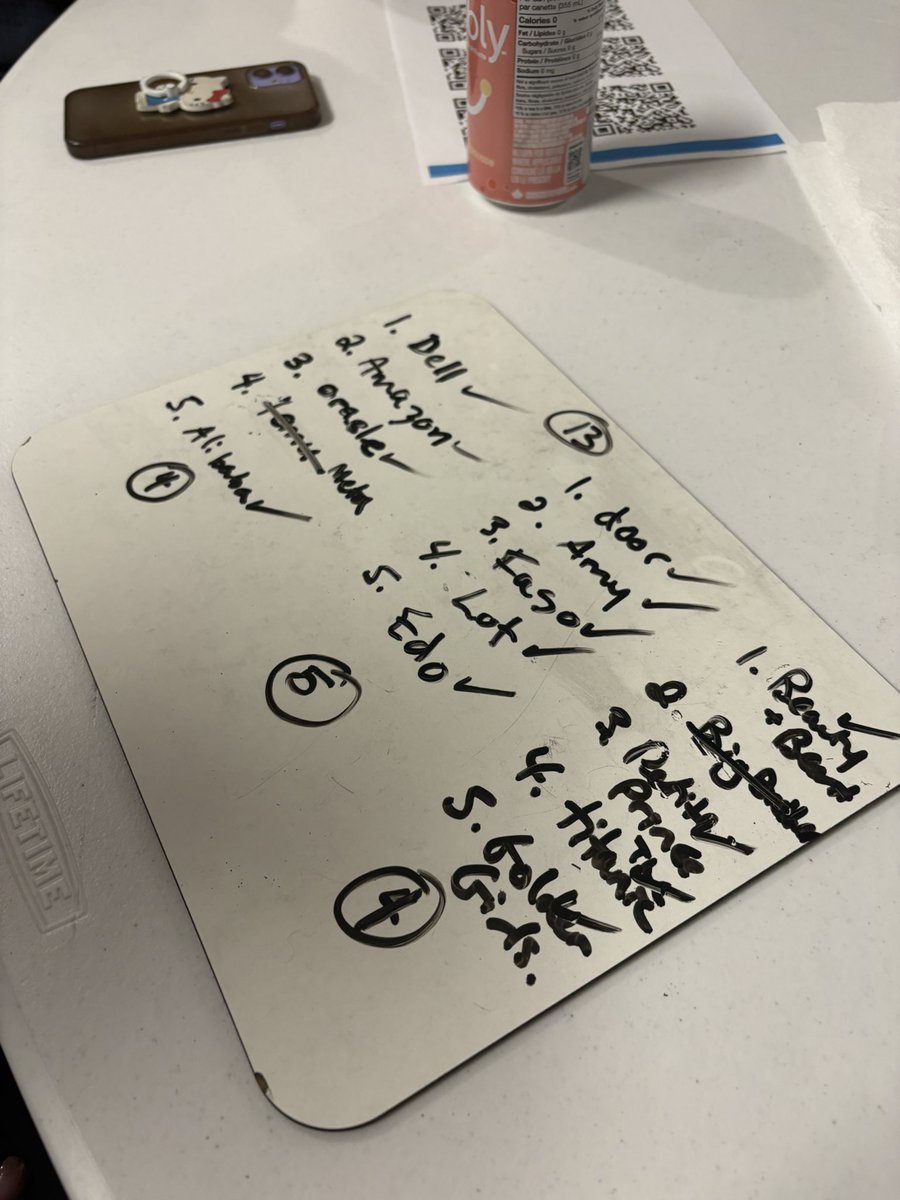 1. Dell ✓
2. Amazon ✓
3. oracle ✓
4. Meta
5. Alibaba ✓
4
13
1. door ✓
2. Army ✓
3. Fargo ✓
4. hot ✓
5. Edo ✓
5
1. Beauty ✓
+ Beast
2. Big
3.
Prince
4. titanic
5. Golden
Girls.
4
bly
par canette (355 mL)
Calories 0
Fat / Lipides 0 g
Carbohydrate / Glucides 0 g
Sugars / Sucres 0 g
Protein / Protéines 0 g
Sodium 0 mg
LIFETIME